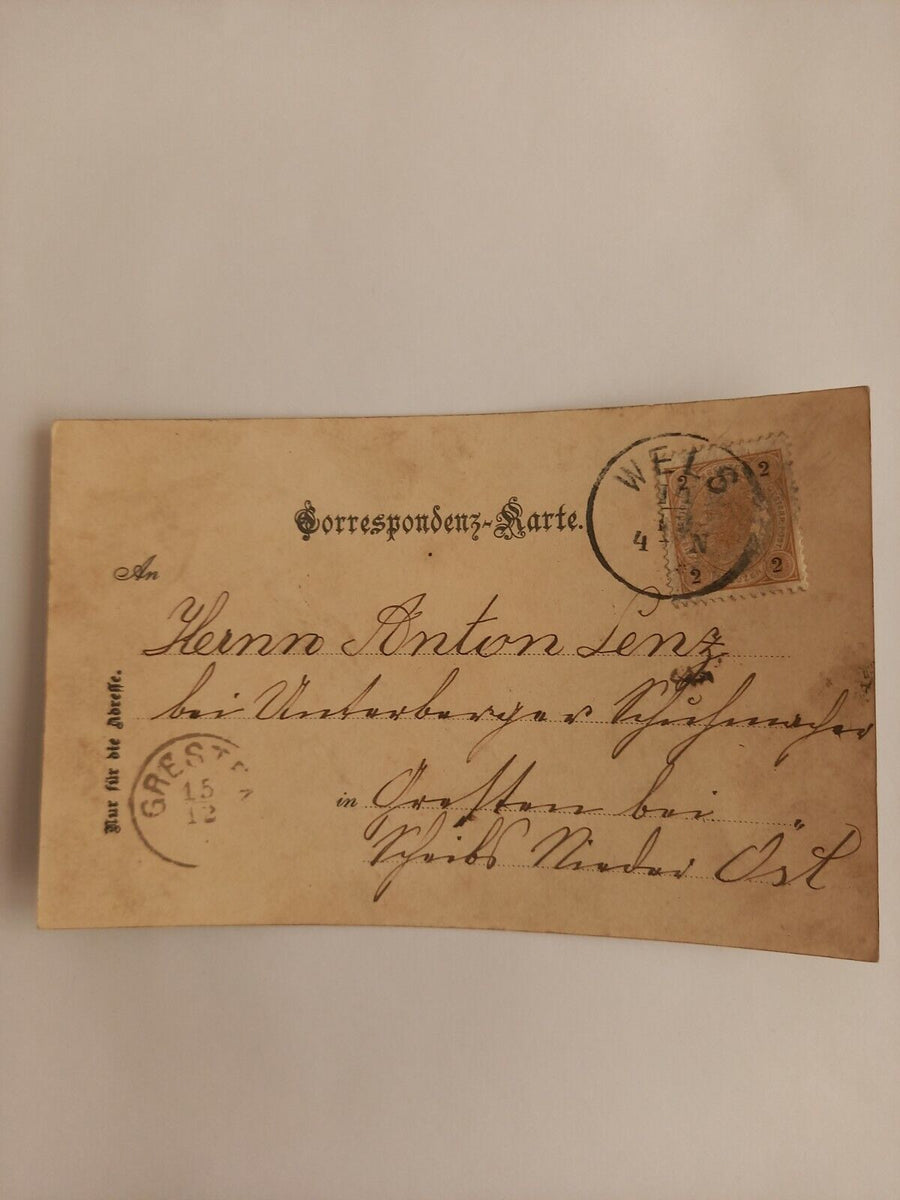 Correspondenz-Karte.
WELS
4 N
2 2
2 2
An
Herrn Anton Lenz
bei Unterberger Schuhmacher
in Gresten bei
Scheibs Nieder Öst
Nur für die Adresse.
GRESTEN
15
12